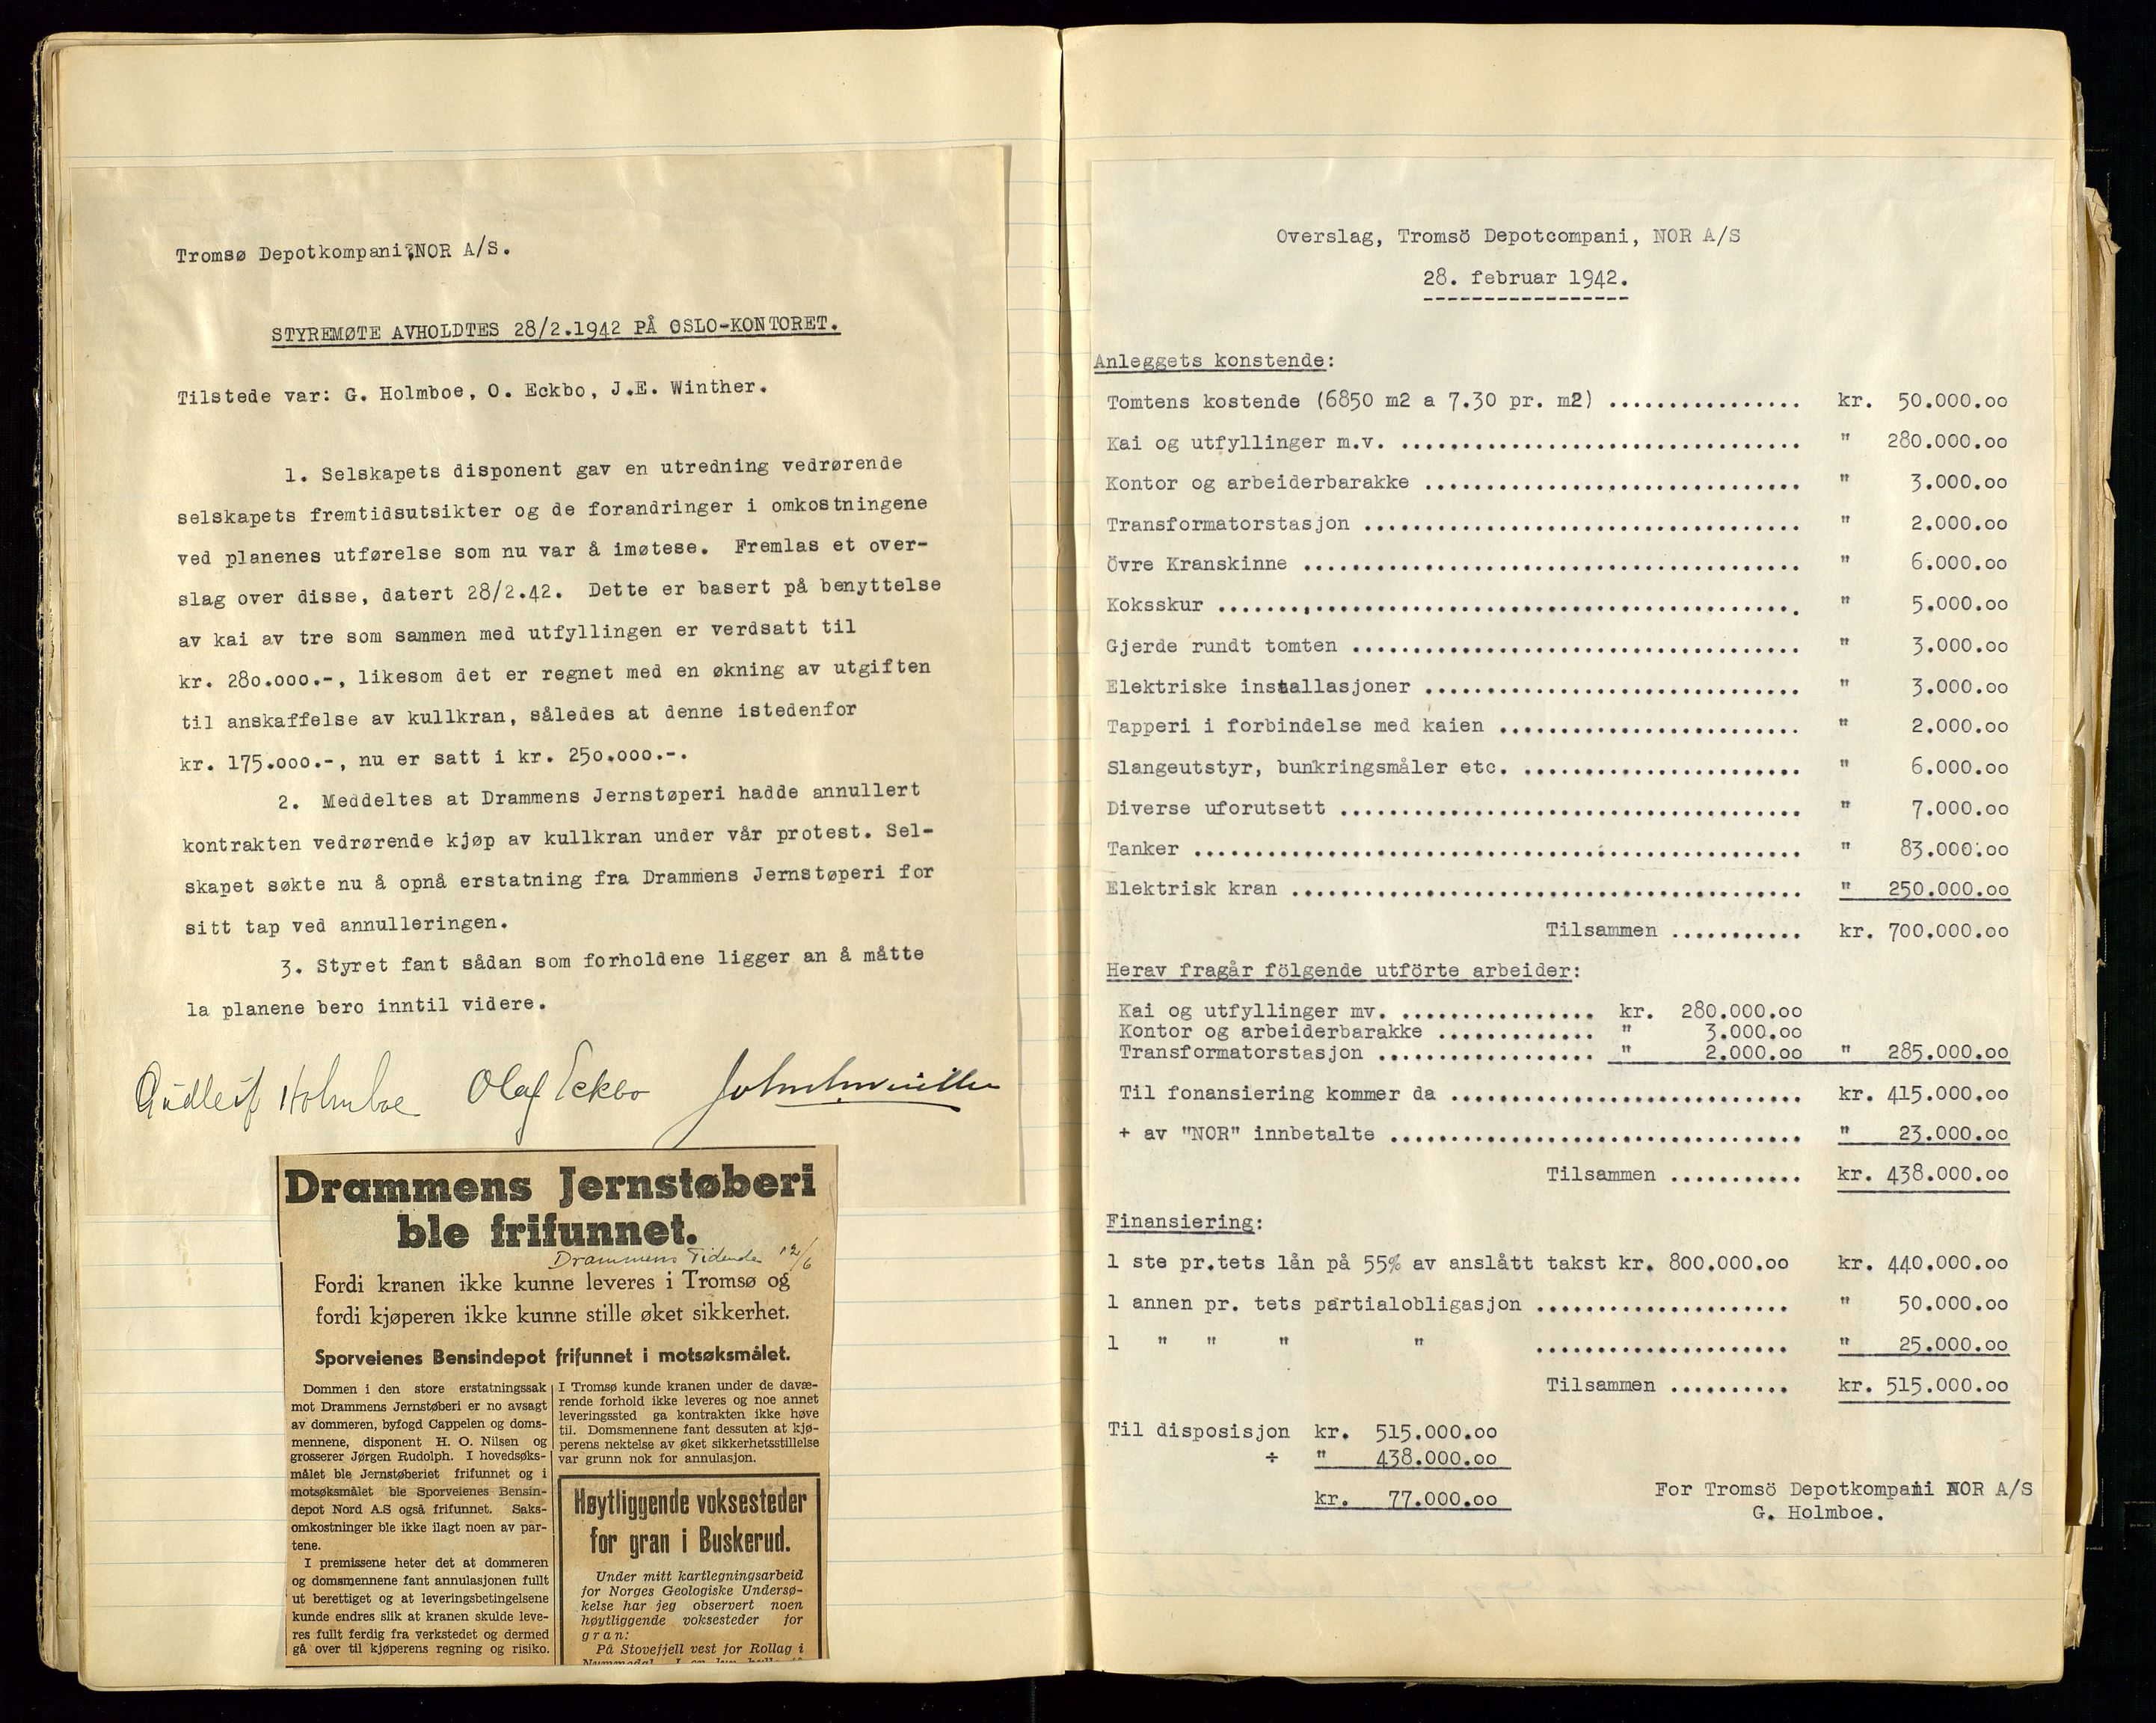 Tromsø Depotkompani, NOR A/S.
STYREMØTE AVHOLDTES 28/2.1942 PÅ OSLO-KONTORET.
Tilstede var: G. Holmboe, O. Eckbo, J.E. Winther.
1. Selskapets disponent gav en utredning vedrørende
selskapets fremtidsutsikter og de forandringer i omkostningene
ved planenes utførelse som nu var å imøtese. Fremlas et over-
slag over disse, datert 28/2.42. Dette er basert på benyttelse
av kai av tre som sammen med utfyllingen er verdsatt til
kr. 280.000.-, likesom det er regnet med en økning av utgiften
til anskaffelse av kullkran, således at denne istedenfor
kr. 175.000.-, nu er satt i kr. 250.000.-.
2. Meddeltes at Drammens Jernstøperi hadde annullert
kontrakten vedrørende kjøp av kullkran under vår protest. Sel-
skapet søkte nu å opnå erstatning fra Drammens Jernstøperi for
sitt tap ved annulleringen.
3. Styret fant sådan som forholdene ligger an å måtte
la planene bero inntil videre.
Gudleif Holmboe Olaf Eckbo
Drammens Jernstøberi
ble frifunnet.
Drammens Tidende 12/6
Fordi kranen ikke kunne leveres i Tromsø og
fordi kjøperen ikke kunne stille øket sikkerhet.
Sporveienes Bensindepot frifunnet i motsøksmålet.
Dommen i den store erstatningssak
mot Drammens Jernstøberi er no avsagt
av dommeren, byfogd Cappelen og doms-
mennene, disponent H. O. Nilsen og
grosserer Jørgen Rudolph. I hovedsøks-
målet ble Jernstøberiet frifunnet og i
motsøksmålet ble Sporveienes Bensin-
depot Nord A.S også frifunnet. Saks-
omkostninger ble ikke ilagt noen av par-
tene.
I premissene heter det at dommeren
og domsmennene fant annulasjonen fullt
ut berettiget og at leveringsbetingelsene
kunde endres slik at kranen skulde leve-
res fullt ferdig fra verkstedet og dermed
gå over til kjøperens regning og risiko.
I Tromsø kunde kranen under de davæ-
rende forhold ikke leveres og noe annet
leveringssted ga kontrakten ikke høve
til. Domsmennene fant dessuten at kjø-
perens nektelse av øket sikkerhetsstillelse
var grunn nok for annulasjon.
Høytliggende voksesteder
for gran i Buskerud.
Under mitt kartlegningsarbeid
for Norges Geologiske Undersø-
kelse har jeg observert noen
høytliggende voksesteder for
gran:
På Stovefjell vest for Rollag i
Overslag, Tromsö Depotcompani, NOR A/S
28. februar 1942.
Anleggets konstende:
Tomtens kostende (6850 m2 a 7.30 pr. m2) ................ kr. 50.000.00
Kai og utfyllinger m.v. ................................. " 280.000.00
Kontor og arbeiderbarakke ............................... " 3.000.00
Transformatorstasjon .................................... " 2.000.00
Övre Kranskinne ......................................... " 6.000.00
Koksskur ................................................ " 5.000.00
Gjerde rundt tomten ..................................... " 3.000.00
Elektriske installasjoner ............................... " 3.000.00
Tapperi i forbindelse med kaien ......................... " 2.000.00
Slangeutstyr, bunkringsmåler etc. ....................... " 6.000.00
Diverse uforutsett ...................................... " 7.000.00
Tanker .................................................. " 83.000.00
Elektrisk kran .......................................... " 250.000.00
Tilsammen ........... kr. 700.000.00
Herav fragår fölgende utförte arbeider:
Kai og utfyllinger mv. ................ kr. 280.000.00
Kontor og arbeiderbarakke ............. " 3.000.00
Transformatorstasjon .................. " 2.000.00 " 285.000.00
Til fonansiering kommer da ............................. kr. 415.000.00
+ av "NOR" innbetalte .................................. " 23.000.00
Tilsammen ........... kr. 438.000.00
Finansiering:
1 ste pr.tets lån på 55% av anslått takst kr. 800.000.00 kr. 440.000.00
1 annen pr. tets partialobligasjon ..................... " 50.000.00
1 " " " " ..................... " 25.000.00
Tilsammen .......... kr. 515.000.00
Til disposisjon kr. 515.000.00
÷ " 438.000.00
kr. 77.000.00
For Tromsö Depotkompani NOR A/S
G. Holmboe.